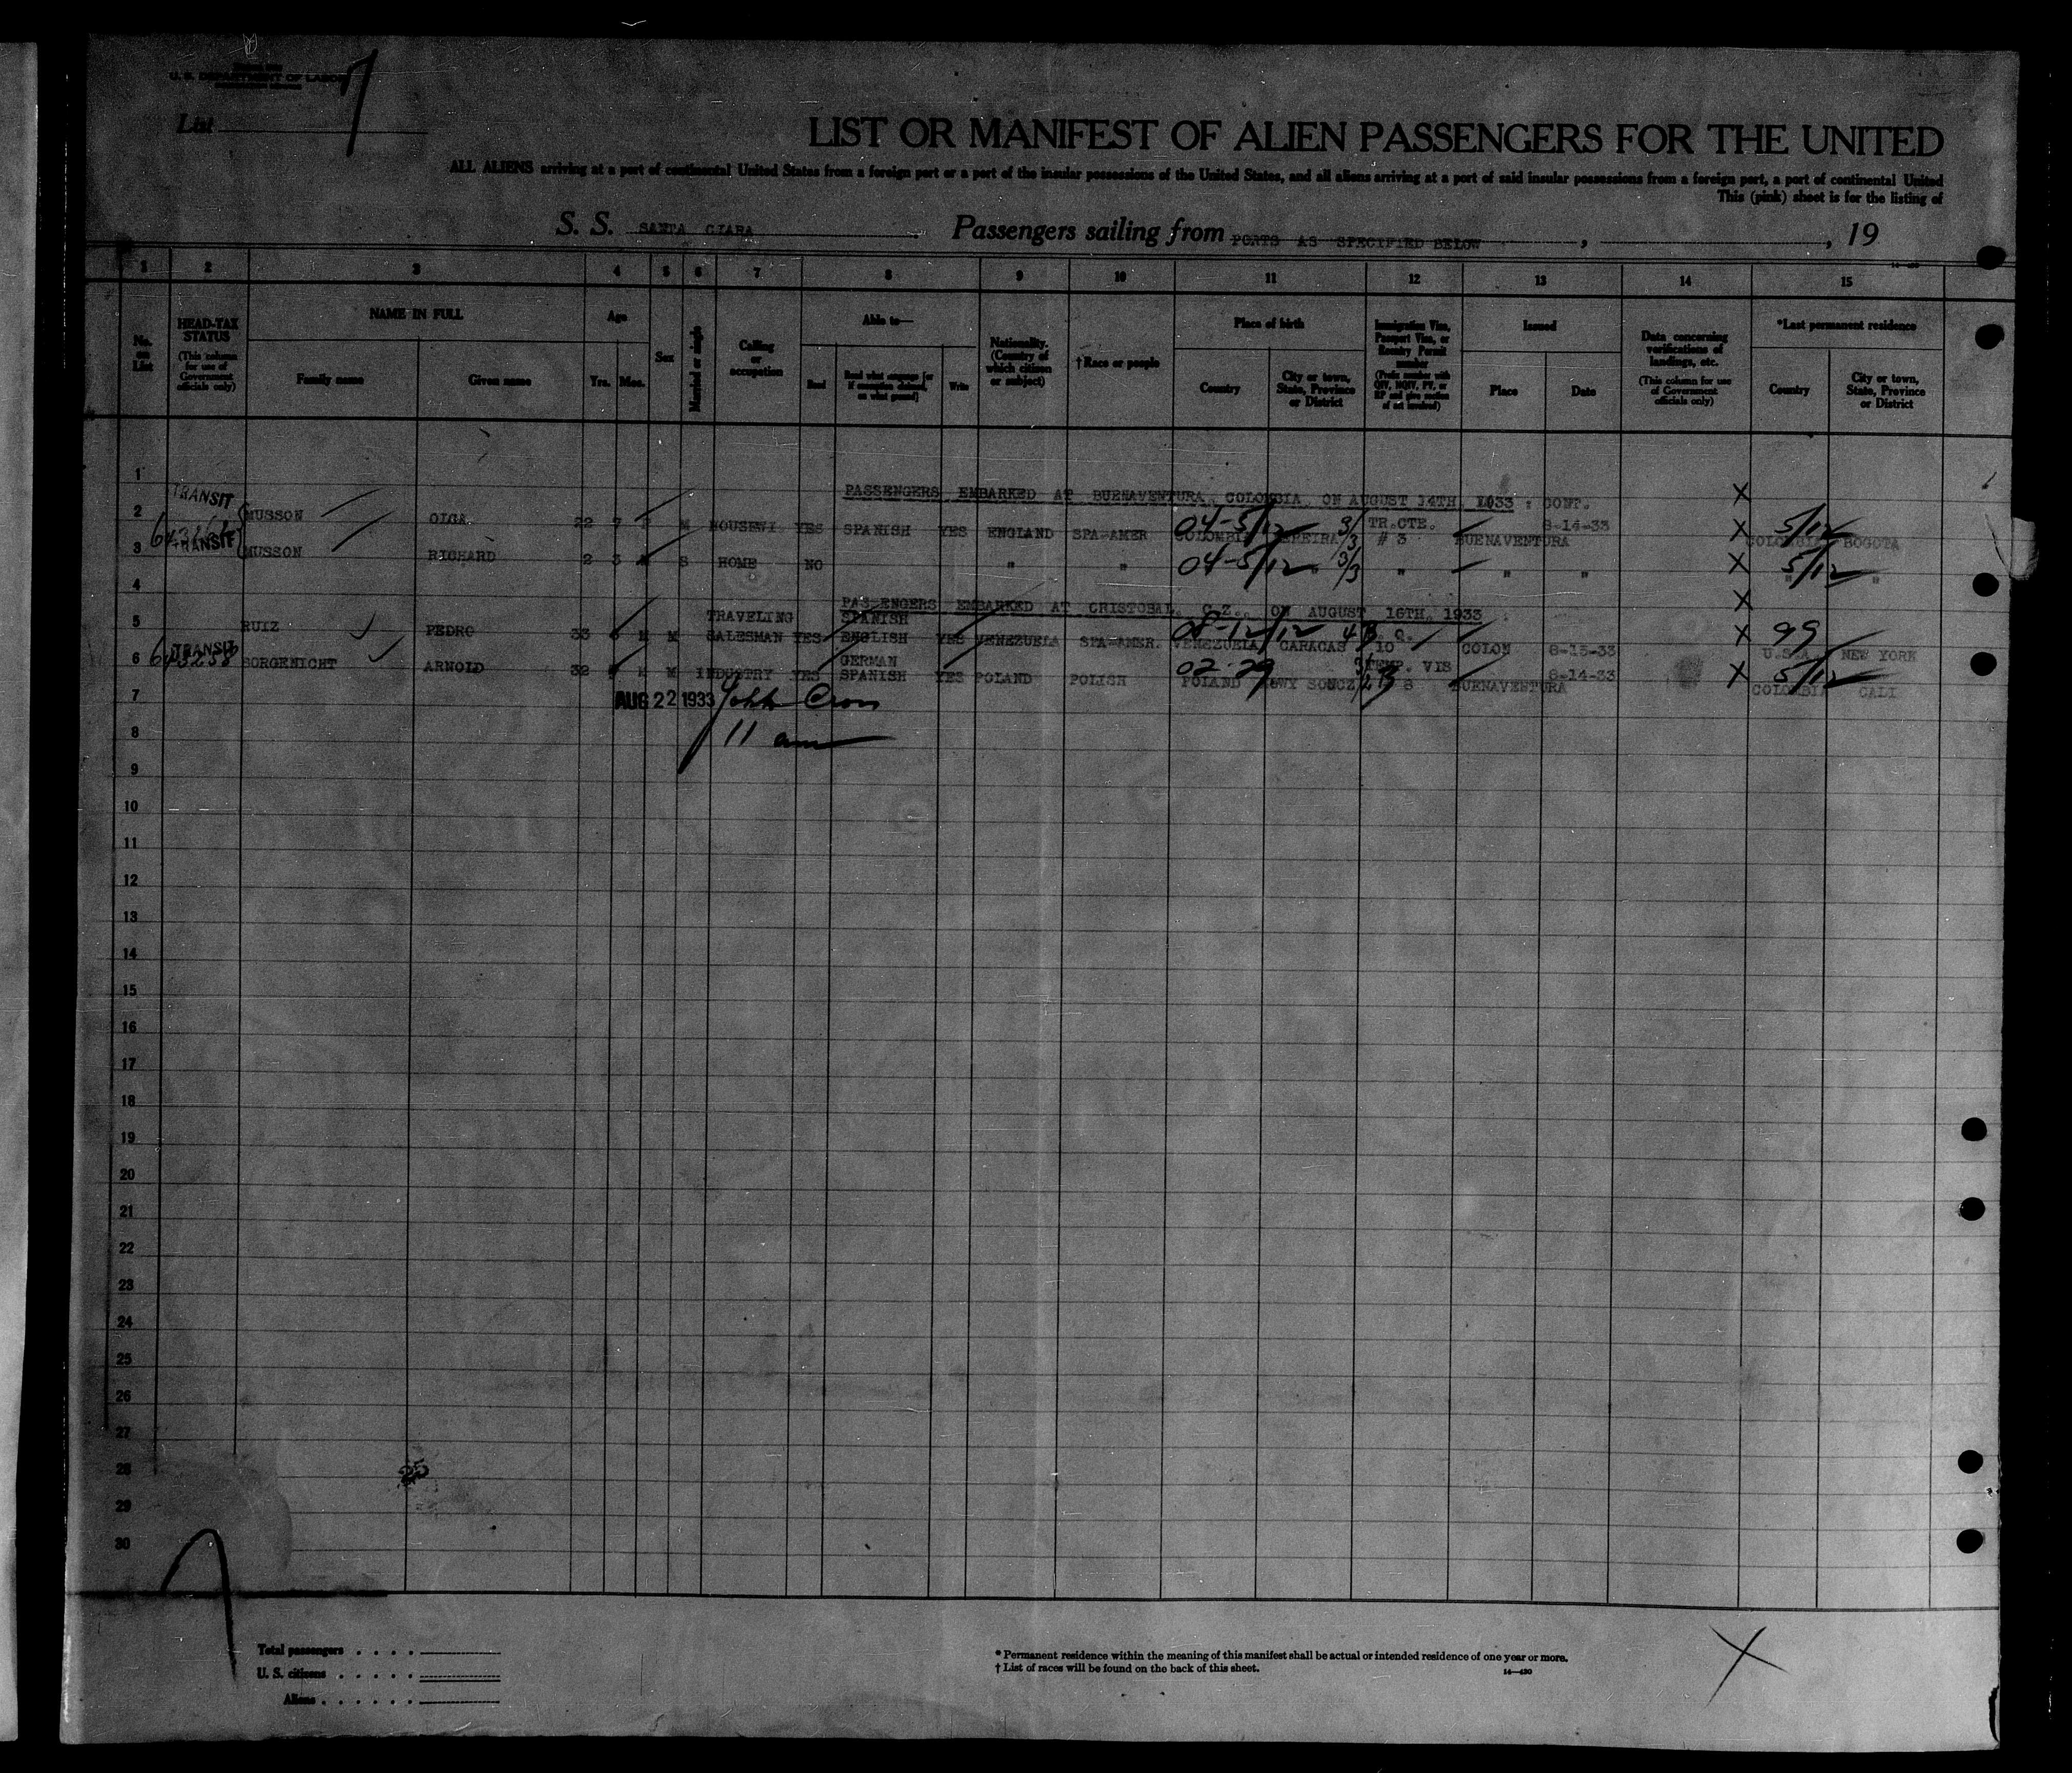 U. S. DEPARTMENT OF LABOR
List 7
LIST OR MANIFEST OF ALIEN PASSENGERS FOR THE UNITED
ALL ALIENS arriving at a port of continental United States from a foreign port or a port of the insular possessions of the United States, and all aliens arriving at a port of said insular possessions from a foreign port, a port of continental United
This (pink) sheet is for the listing of
S. S. SANTA CLARA Passengers sailing from PORTS AS SPECIFIED BELOW , , 19
1 2 3 4 5 6 7 8 9 10 11 12 13 14 15
No. on List
HEAD-TAX STATUS (This column for use of Government officials only)
NAME IN FULL
Family name
Given name
Age
Yrs. Mos.
Sex
Married or single
Calling or occupation
Able to—
Read
Read what language [or if exemption claimed, on what ground]
Write
Nationality. (Country of which citizen or subject)
†Race or people
Place of birth
Country
City or town, State, Province or District
Immigration Visa, Passport Visa, or Reentry Permit number
(Prefix number with QIV, NQIV, PV, or RP and give section of act involved)
Issued
Place
Date
Data concerning verifications of landings, etc.
(This column for use of Government officials only)
*Last permanent residence
Country
City or town, State, Province or District
1 PASSENGERS EMBARKED AT BUENAVENTURA, COLOMBIA, ON AUGUST 14TH, 1933 : CONT. X
2 TRANSIT MUSSON OLGA 22 7 M HOUSEWI YES SPANISH YES ENGLAND SPA-AMER 04-5/12 COLOMBIA PEREIRA 3/3 TR.CTE. # 3 BUENAVENTURA 8-14-33 X 5/12 COLOMBIA BOGOTA
3 TRANSIT MUSSON RICHARD 2 3 M S HOME NO " " 04-5/12 " 3/3 " " " X 5/12 " "
4 PASSENGERS EMBARKED AT CRISTOBAL, C.Z., ON AUGUST 16TH, 1933 : X
5 RUIZ PEDRO 33 6 M M TRAVELING SALESMAN YES SPANISH ENGLISH YES VENEZUELA SPA-AMER. 08-12/12 VENEZUELA CARACAS 10 COLON 8-15-33 X 99 U.S.A. NEW YORK
6 TRANSIT 643258 SORGENICHT ARNOLD 32 M M INDUSTRY YES GERMAN SPANISH YES POLAND POLISH 02-29 POLAND NOWY SONCZ TEMP. VIS 8 BUENAVENTURA 8-14-33 X 5/12 COLOMBIA CALI
7 AUG 22 1933 John Cron
8 11 am
9
10
11
12
13
14
15
16
17
18
19
20
21
22
23
24
25
26
27
28 25
29
30
Total passengers
U. S. citizens
Aliens
* Permanent residence within the meaning of this manifest shall be actual or intended residence of one year or more.
† List of races will be found on the back of this sheet.
14—430
X